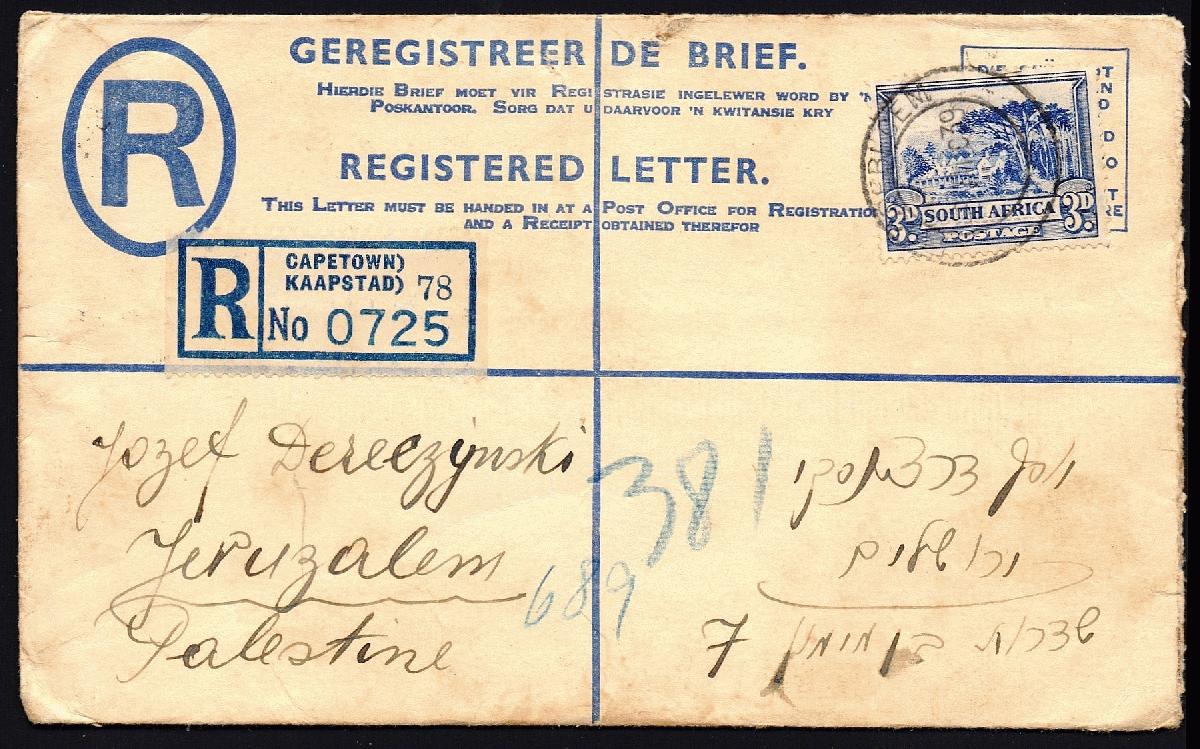 R
GEREGISTREERDE BRIEF.
HIERDIE BRIEF MOET VIR REGISTRASIE INGELEWER WORD BY 'N
POSKANTOOR. SORG DAT U DAARVOOR 'N KWITANSIE KRY
REGISTERED LETTER.
THIS LETTER MUST BE HANDED IN AT A POST OFFICE FOR REGISTRATIO
AND A RECEIPT OBTAINED THEREFOR
3D. SOUTH AFRICA 3D.
POSTAGE
R
CAPETOWN)
KAAPSTAD) 78
No 0725
Jozef Dereczynski
Jeruzalem
Palestine
381
689
יוסף דרצ'ינסקי
ירושלים
שדרות בן מימון 7